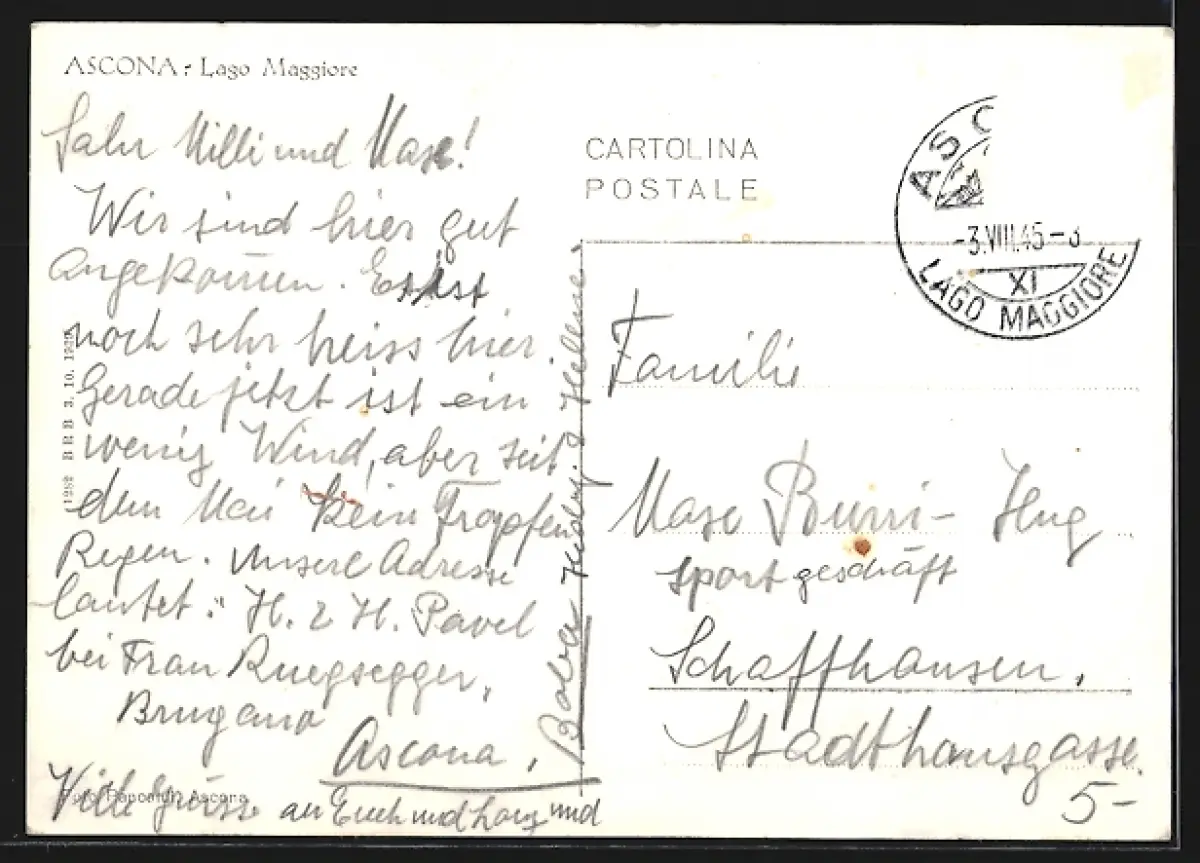 ASCONA: Lago Maggiore
Salu Milli und Maxe!
Wir sind hier gut
Angekommen. Es ist
noch sehr heiss hier.
Gerade jetzt ist ein
wenig Wind, aber seit
dem Mai kein Tropfen
Regen. Unsere Adresse
lautet: H. & H. Pavel
bei Frau Ruegsegger,
Ascona,
Viele Grüsse an Euch und
und
1282 BRB 3. 10. 1939
Ascona
CARTOLINA
POSTALE
ASC
-3.VIII.45-3
XI
LAGO MAGGIORE
Familie
Maxe Burri-Hug
Sportgeschäft
Schaffhausen.
Stadthausgasse.
5-